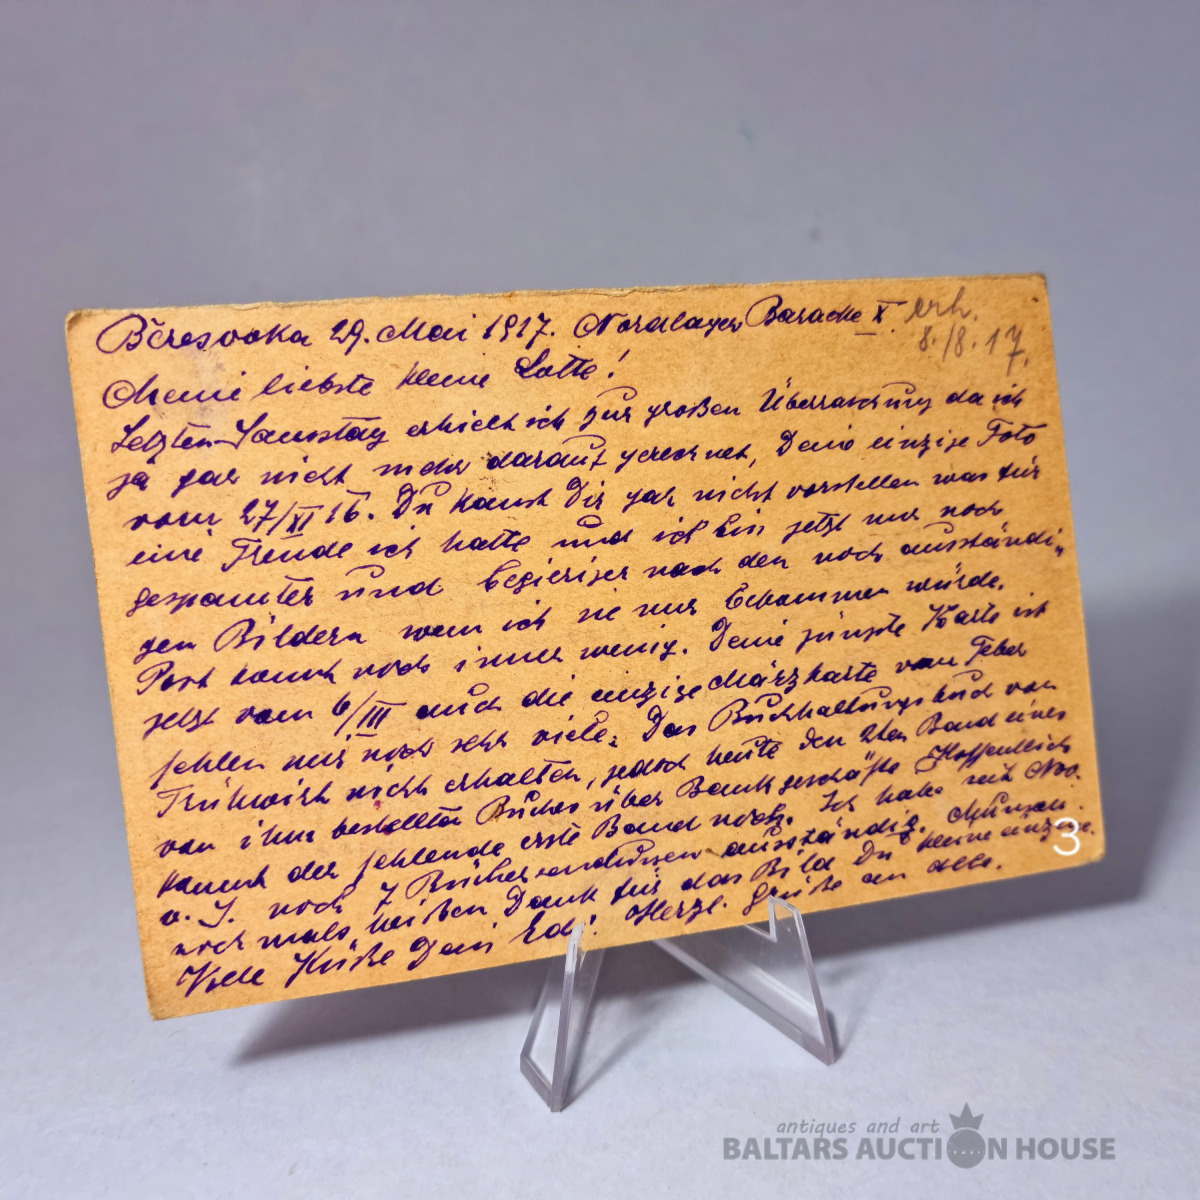 Bĕresovka 29. Mai 1917. Nordlager Baracke X. erh.
8./8. 17.
Meine liebste kleine Lotte!
Letzten Samstag erhielt ich zur großen Überraschung da ich
ja gar nicht mehr darauf gerechnet, Deine einzige Foto
vom 27/XI 16. Du kanst Dir gar nicht vorstellen was für
eine Freude ich hatte und ich bin jetzt nur noch
gespannter und begieriger nach den noch ausständi-
gen Bildern wenn ich sie nur bekommen würde.
Post kommt noch immer wenig. Deine jüngste Karte ist
jetzt vom 6/III auch die einzige Märzkarte vom Feber
fehlen mir noch sehr viele. Das Buchhaltungsbuch von
Frühwirth nicht erhalten, jedoch heute den 2ten Band eines
von ihm bestellten Buches über Bankgeschäfte Hoffentlich
kommt der fehlende erste Band noch. Ich habe seit Nov.
v. J. noch 7 Büchersendungen ausständig.
nochmals heißen Dank für das Bild Du kleine einzige.
Viele Küße Dein Edi. Herzl. Grüße an alle.
3
antiques and art
BALTARS AUCTION HOUSE